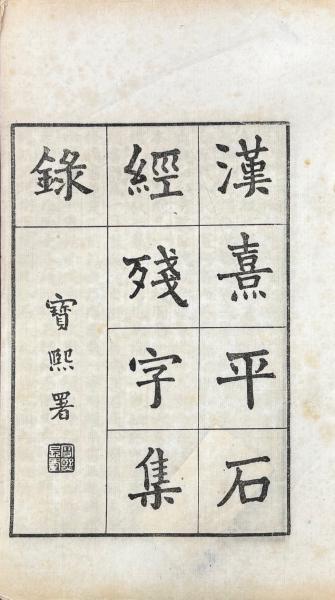 漢熹平石
經殘字集
錄
寶熙署